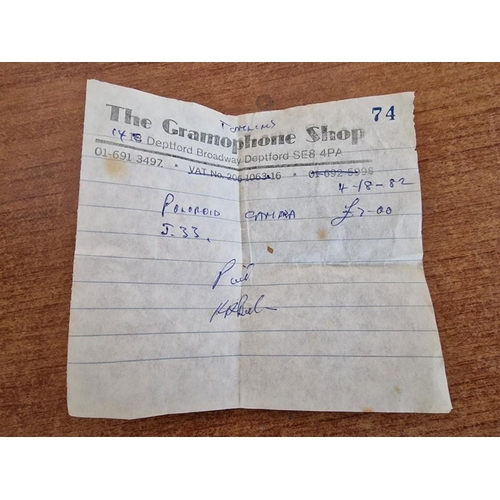 The Gramophone Shop 74
TOMLINS
Deptford Broadway Deptford SE8 4PA
01-691 3497 • VAT No. 206 1063 16 • 01-692 5998
4-18-82
POLOROID CAMARA £7-00
J.33.
Paid